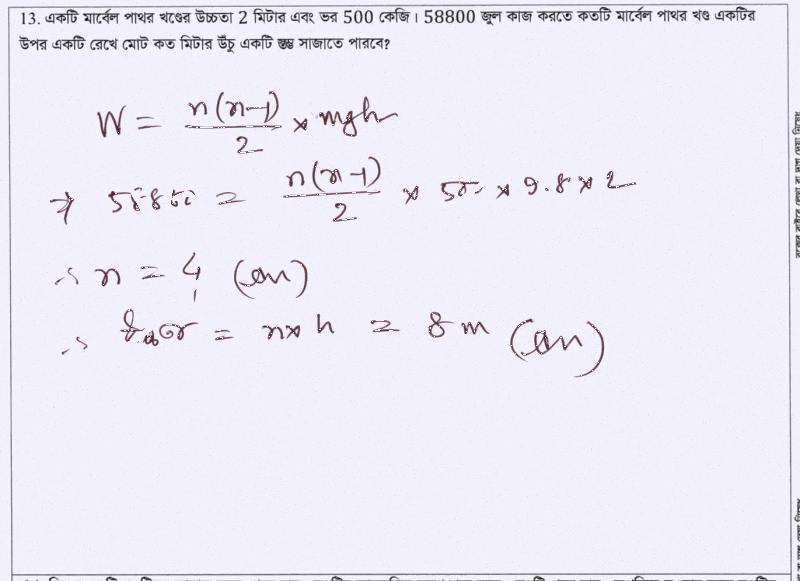 13. একটি মার্বেল পাথর খণ্ডের উচ্চতা 2 মিটার এবং ভর 500 কেজি। 58800 জুল কাজ করতে কতটি মার্বেল পাথর খণ্ড একটির
উপর একটি রেখে মোট কত মিটার উঁচু একটি স্তম্ভ সাজাতে পারবে?
W = n(n-1)/2 × mgh
⇒ = n(n-1)/2 × × 9.8 × 2
∴ n = 4 (Ans)
∴ = n×h = 8 m (Ans)